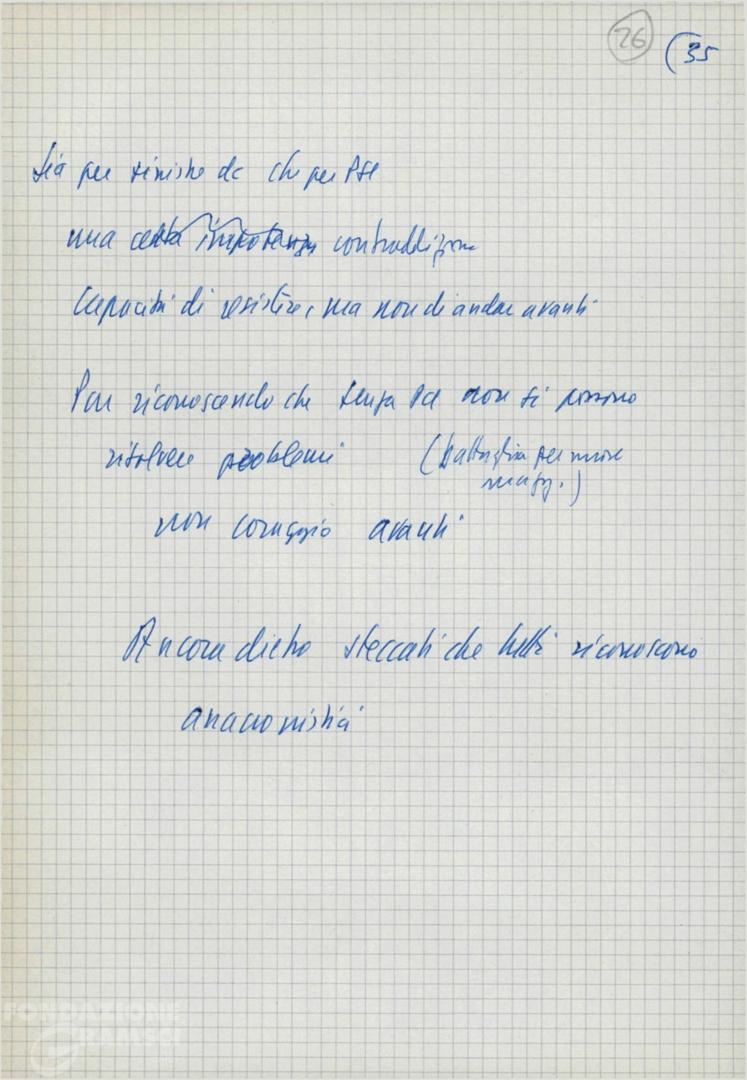 26 (35
Sia per sinistre dc che per PSI
una certa impotenza contraddizione
Capacità di resistere, ma non di andare avanti
Pur riconoscendo che senza Pci non si possono
risolvere problemi (battaglia per nuove
magg.)
non coraggio avanti
Ancora dietro steccati che tutti riconoscono
anacronistici
FONDAZIONE
GRAMSCI